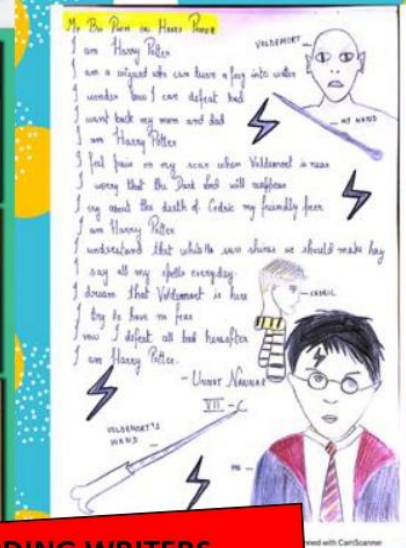 My Bio Poem on Harry Potter
I am Harry Potter
I am a wizard who can turn a fog into water
I wonder how I can defeat bad
I want back my mom and dad
I am Harry Potter
I feel pain on my scar when Voldemort is near
I worry that the Dark lord will reappear
I cry about the death of Cedric my friendly peer
I am Harry Potter
I understand that while the sun shines we should make hay
I say all my spells everyday.
I dream that Voldemort is here
I try to have no fear
I vow I defeat all bad hereafter
I am Harry Potter.
- Unnat
VII - C
VOLDEMORT
MY WAND
CEDRIC
VOLDEMORT'S
WAND
ME
WRITERS
nned with CamScanner